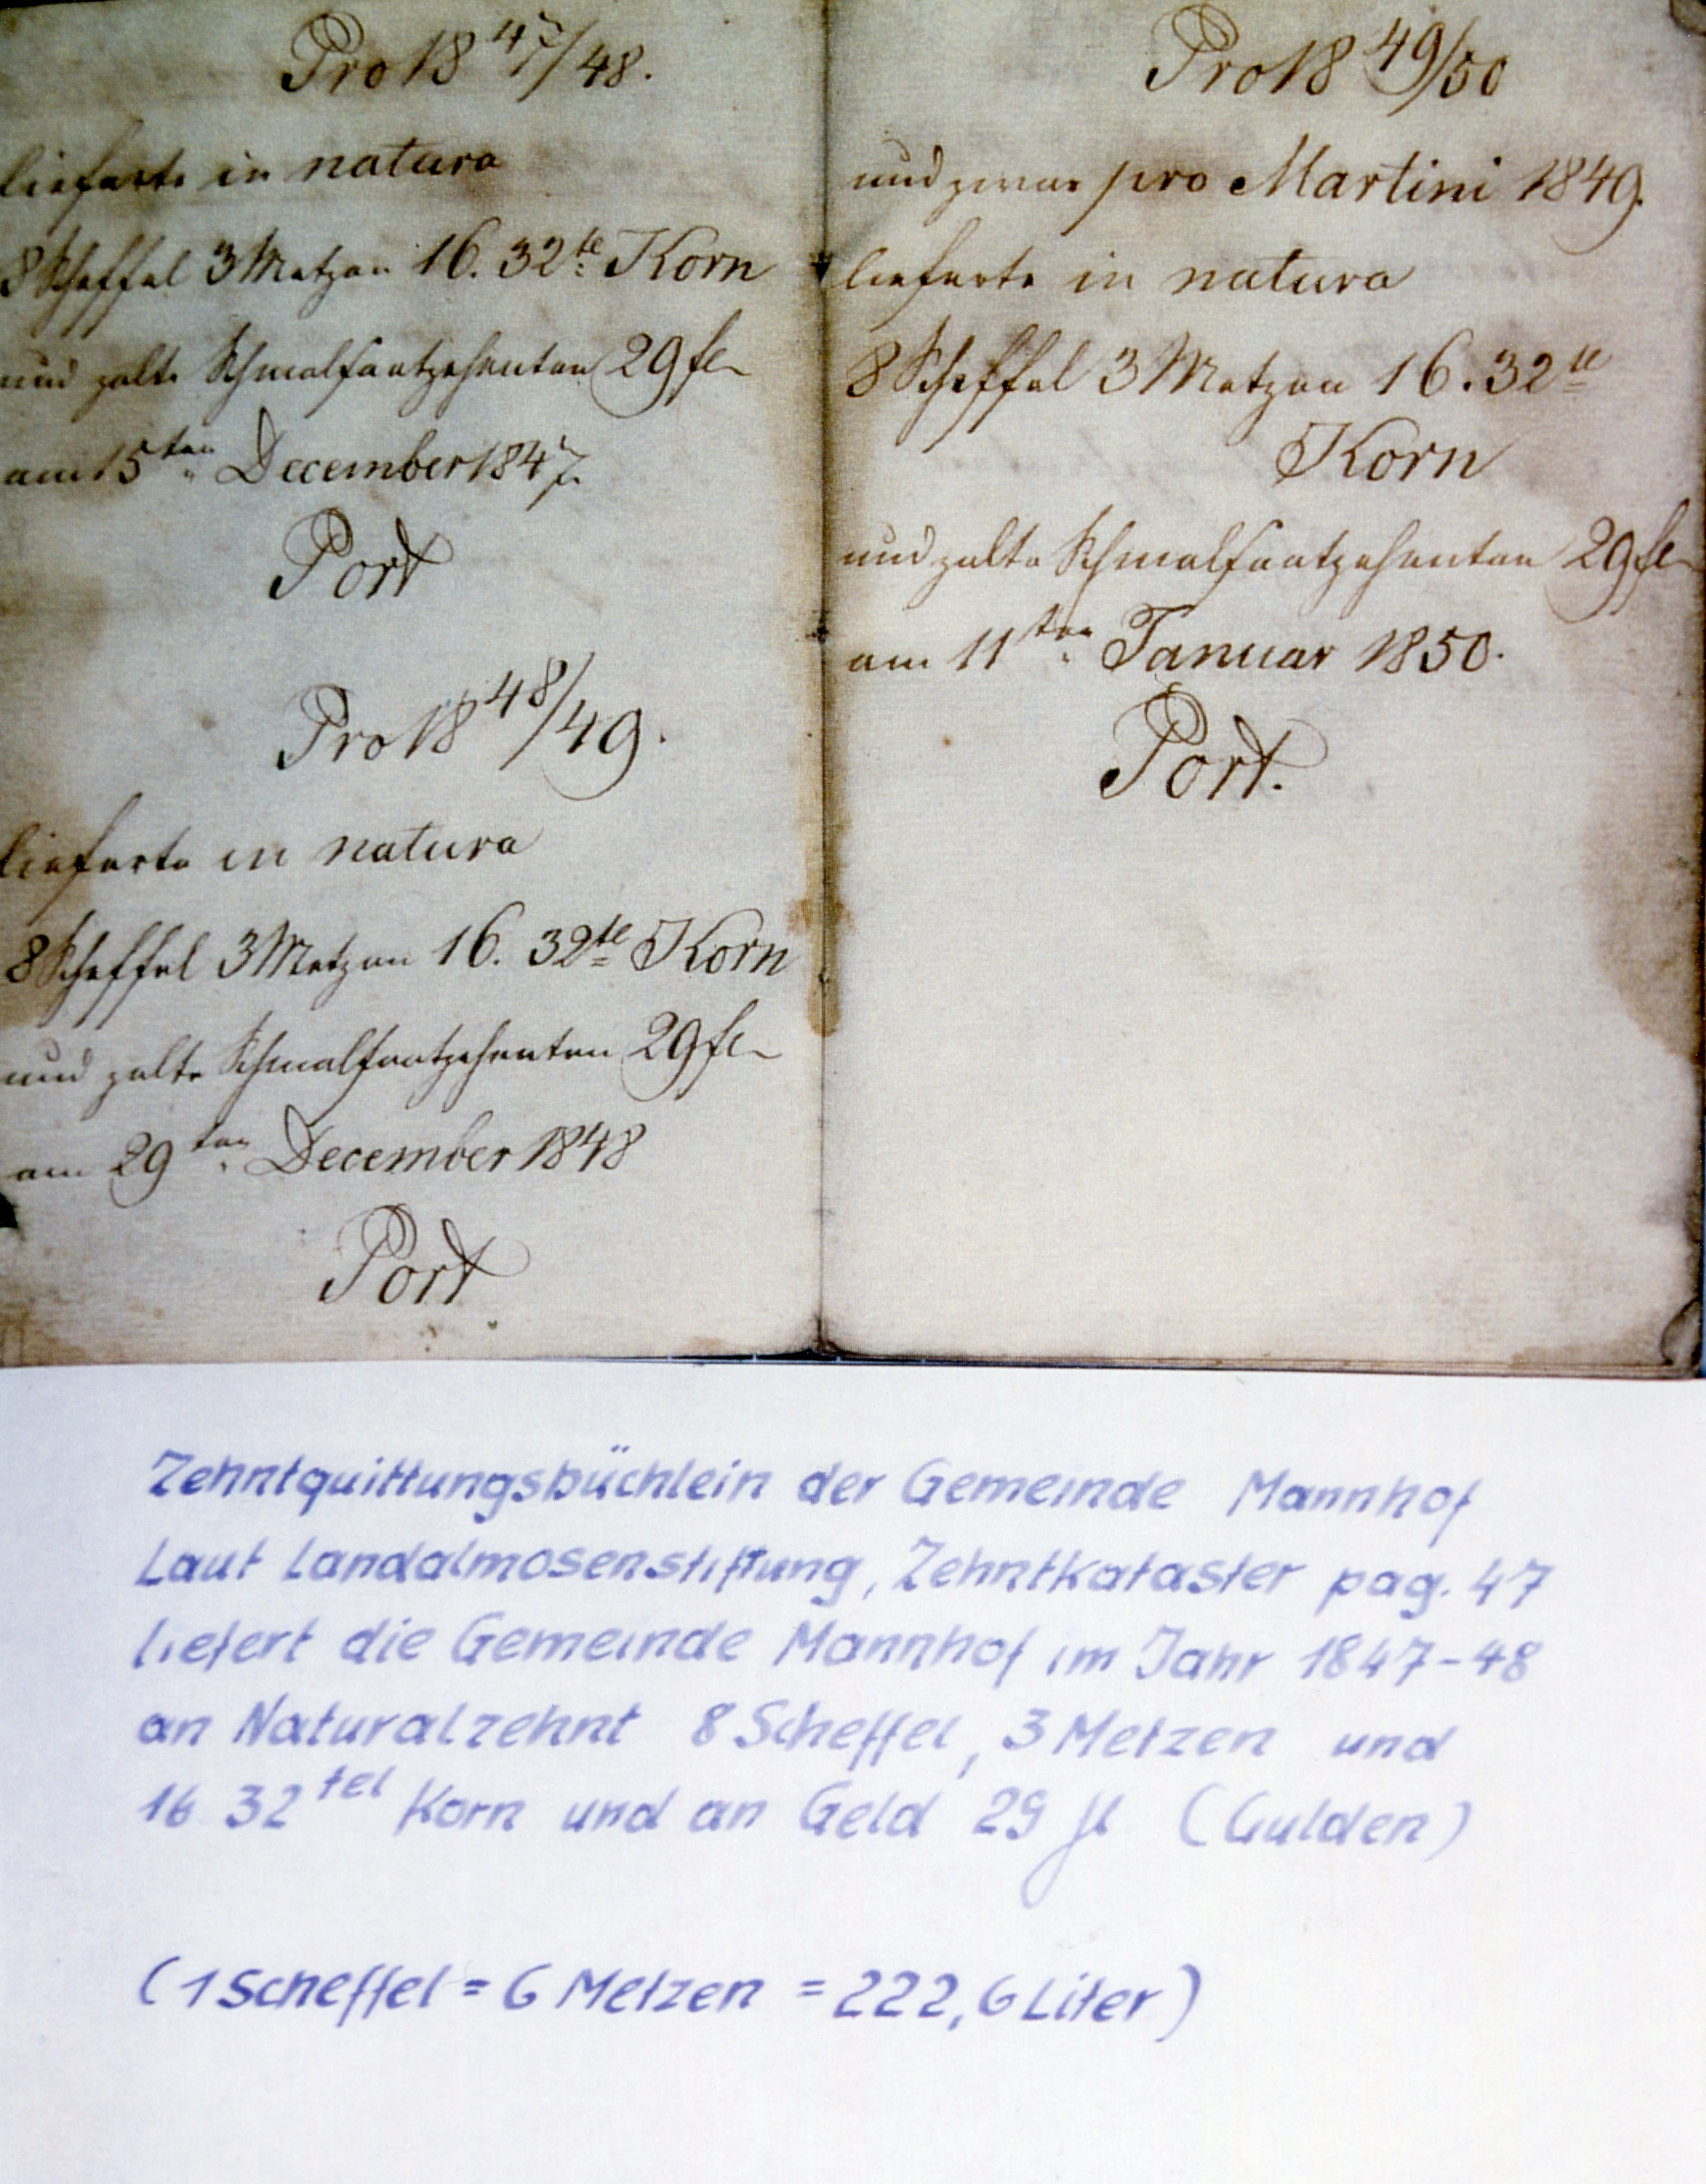 Pro 18 47/48.
lieferte in natura
8 Scheffel 3 Metzen 16. 32te Korn
und zalte Schmalsaatzehenten 29 fl
am 15ten December 1847.
Port
Pro 18 48/49.
lieferte in natura
8 Scheffel 3 Metzen 16. 32te Korn
und zalte Schmalsaatzehenten 29 fl
am 29ten December 1848
Port
Pro 18 49/50
und zwar pro Martini 1849.
lieferte in natura
8 Scheffel 3 Metzen 16. 32te
Korn
und zalte Schmalsaatzehenten 29 fl
am 11ten Januar 1850.
Port.
Zehntquittungsbüchlein der Gemeinde Mannhof
Laut Landalmosenstiftung, Zehntkataster pag. 47
liefert die Gemeinde Mannhof im Jahr 1847-48
an Naturalzehnt 8 Scheffel, 3 Metzen und
16 32tel Korn und an Geld 29 fl (Gulden)
(1 Scheffel = 6 Metzen = 222,6 Liter)